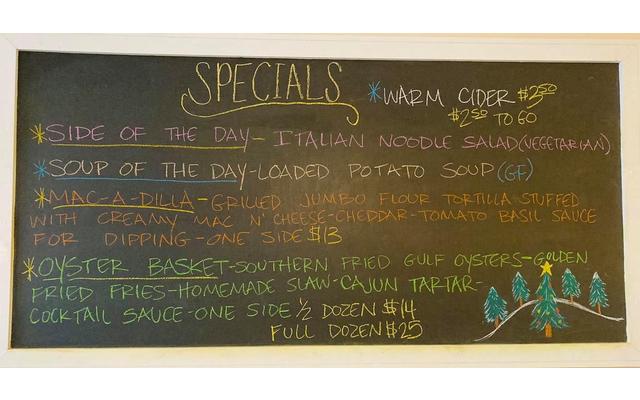 SPECIALS
*WARM CIDER $3.50
$2.50 TO GO
*SIDE OF THE DAY-ITALIAN NOODLE SALAD(VEGETARIAN)
*SOUP OF THE DAY-LOADED POTATO SOUP(GF)
*MAC-A-DILLA-GRILLED JUMBO FLOUR TORTILLA STUFFED
WITH CREAMY MAC N' CHEESE-CHEDDAR-TOMATO BASIL SAUCE
FOR DIPPING-ONE SIDE $13
*OYSTER BASKET-SOUTHERN FRIED GULF OYSTERS-GOLDEN
FRIED FRIES-HOMEMADE SLAW-CAJUN TARTAR-
COCKTAIL SAUCE-ONE SIDE ½ DOZEN $14
FULL DOZEN $25